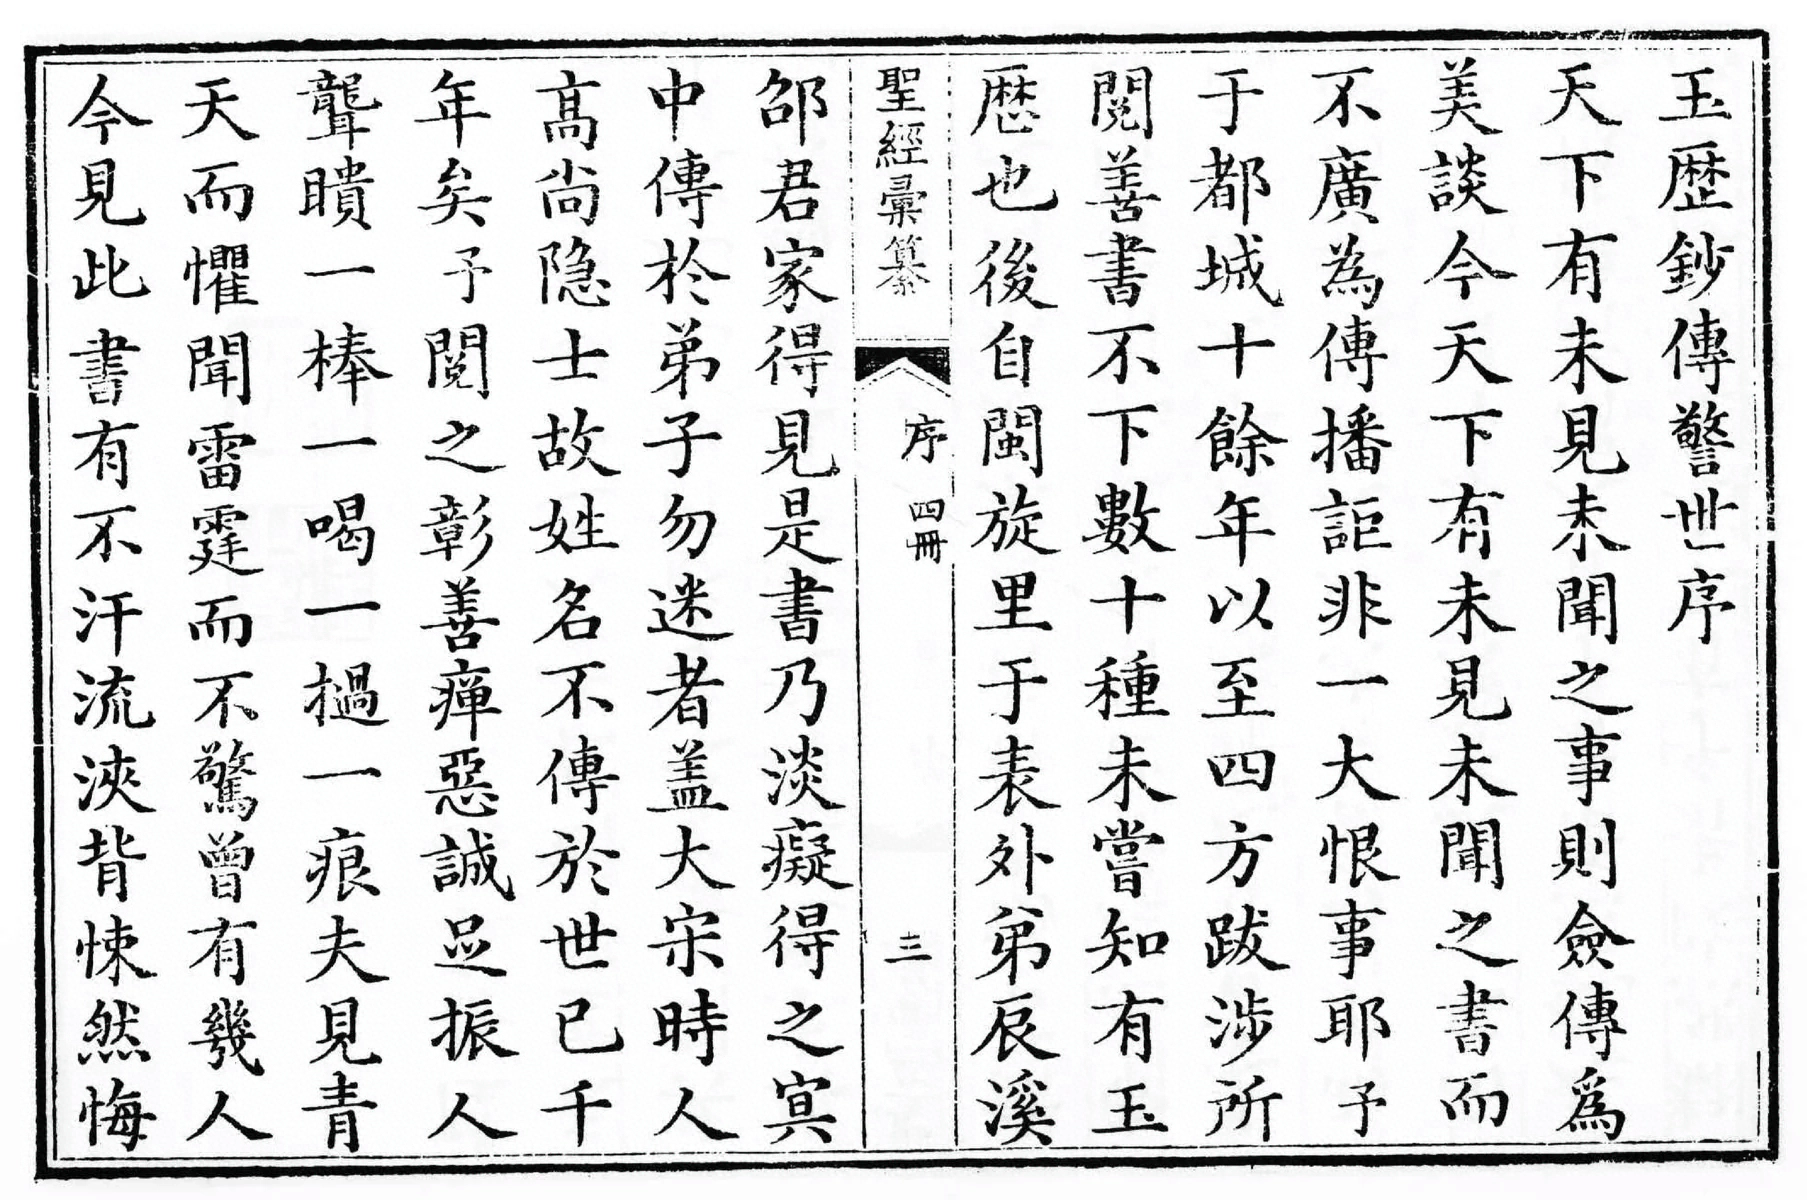 玉歷鈔傳警世序
天下有未見未聞之事則僉傳為
美談今天下有未見未聞之書而
不廣為傳播詎非一大恨事耶予
于都城十餘年以至四方跋涉所
閱善書不下數十種未嘗知有玉
歷也後自閩旋里于表外弟辰溪
聖經彙纂
序
四冊
三
邵君家得見是書乃淡癡得之冥
中傳於弟子勿迷者盖大宋時人
高尚隐士故姓名不傳於世已千
年矣予閱之彰善癉惡誠足振人
聾聵一棒一喝一撾一痕夫見青
天而懼聞雷霆而不驚曾有幾人
今見此書有不汗流浹背悚然悔